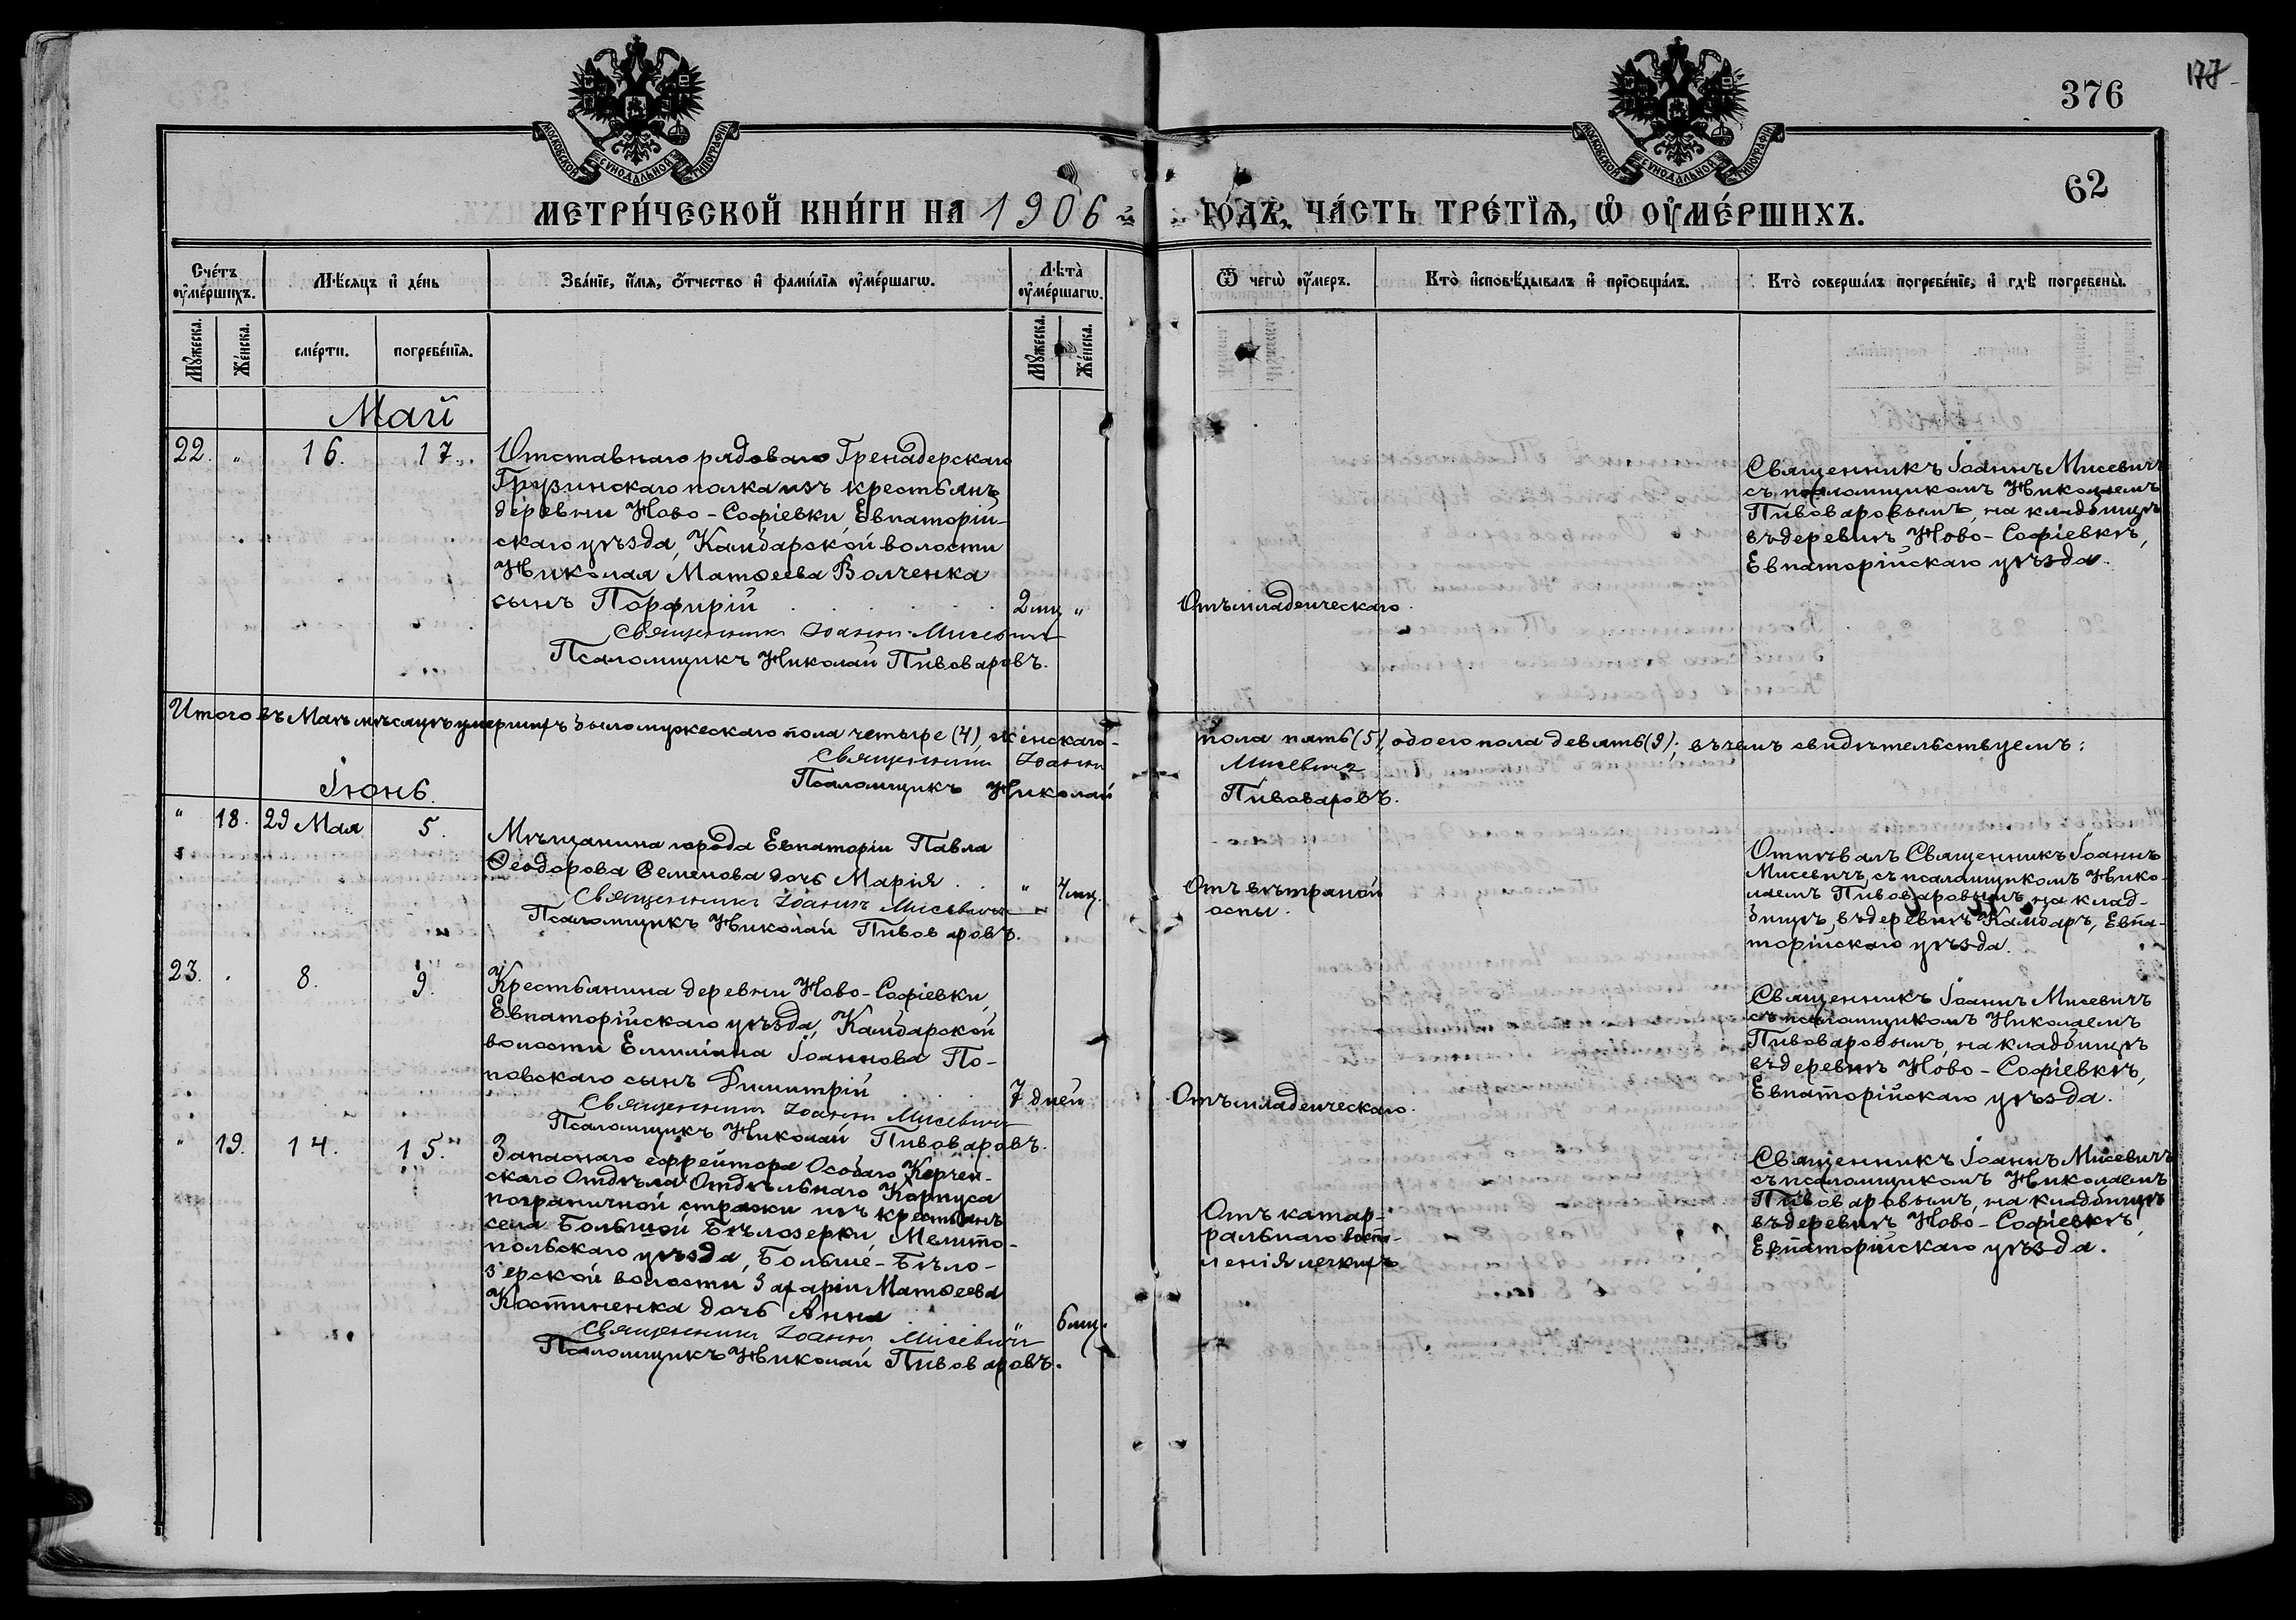 376
177
МОСКОВСКОЙ СѴНОДАЛЬНОЙ ТИПОГРАФІИ
МОСКОВСКОЙ СѴНОДАЛЬНОЙ ТИПОГРАФІИ
62
МЕТРИ́ЧЕСКОЙ КНИ́ГИ НА 1906 й ГО́ДЪ, ЧА́СТЬ ТРЕ́ТІѦ, Ѡ ОУ҆МЕ́РШИХЪ.
Сче́тъ оу҆ме́ршихъ.
Мѣ́сяцъ и҆ де́нь
Зва́нїе, и҆́мѧ, ѻ҆́тчество и҆ фами́лїѧ оу҆ме́ршагѡ.
Лѣта̀ оу҆ме́ршагѡ.
Ѿ чегѡ̀ оу҆́меръ.
Кто̀ и҆сповѣ́дывалъ и҆ прїѻбща́лъ.
Кто̀ соверша́лъ погребе́нїе, и҆ гдѣ̀ погребены̀.
Мꙋ́жеска.
Же́нска.
сме́рти.
погребе́нїѧ.
Мꙋ́жеска.
Же́нска.
Май
22. " 16. 17. Отставнаго рядоваго Гренадерскаго
Грузинскаго полка изъ крестьянъ
деревни Ново-Софіевки, Евпаторій-
скаго уѣзда, Камбарской волости
Николая Матѳеева Волченка
сынъ Порфирій 2 мц "
Священникъ Іоаннъ Мисевичъ
Псаломщикъ Николай Пивоваровъ.
Отъ младенческаго.
Священникъ Іоаннъ Мисевичъ
съ псаломщикомъ Николаемъ
Пивоваровымъ, на кладбищѣ
въ деревнѣ Ново-Софіевкѣ,
Евпаторійскаго уѣзда.
Итого въ Маѣ мѣсяцѣ умершихъ было мужескаго пола четыре (4), женскаго пола пять (5), обоего пола девять (9); въ чемъ свидѣтельствуемъ:
Священникъ Іоаннъ Мисевичъ
Псаломщикъ Николай Пивоваровъ.
Іюнь.
" 18. 29 Мая 5. Мѣщанина города Евпаторіи Павла
Ѳеодорова Семенова дочь Марія " 4 мц.
Священникъ Іоаннъ Мисевичъ
Псаломщикъ Николай Пивоваровъ.
Отъ вѣтраной
оспы.
Отпѣвалъ Священникъ Іоаннъ
Мисевичъ, съ псаломщикомъ Нико-
лаемъ Пивоваровымъ, на клад-
бищѣ, въ деревнѣ Камбаръ, Евпа-
торійскаго уѣзда.
23. . 8. 9. Крестьянина деревни Ново-Софіевки,
Евпаторійскаго уѣзда, Камбарской
волости Емиліана Іоаннова По-
повскаго сынъ Димитрій 7 дней "
Священникъ Іоаннъ Мисевичъ
Псаломщикъ Николай Пивоваровъ.
Отъ младенческаго.
Священникъ Іоаннъ Мисевичъ
съ псаломщикомъ Николаемъ
Пивоваровымъ, на кладбищѣ
въ деревнѣ Ново-Софіевкѣ,
Евпаторійскаго уѣзда.
" 19. 14. 15. Запаснаго ефрейтора Особаго Керчен-
скаго Отдѣла Отдѣльнаго Корпуса
пограничной стражи изъ крестьянъ
села Большой Бѣлозерки, Мелито-
польскаго уѣзда, Больше-Бѣло-
зерской волости Захаріи Матѳеева
Костиненка дочь Анна " 6 мц.
Священникъ Іоаннъ Мисевичъ
Псаломщикъ Николай Пивоваровъ.
Отъ катар-
ральнаго воспа-
ленія легкихъ
Священникъ Іоаннъ Мисевичъ
съ псаломщикомъ Николаемъ
Пивоваровымъ, на кладбищѣ
въ деревнѣ Ново-Софіевкѣ,
Евпаторійскаго уѣзда.